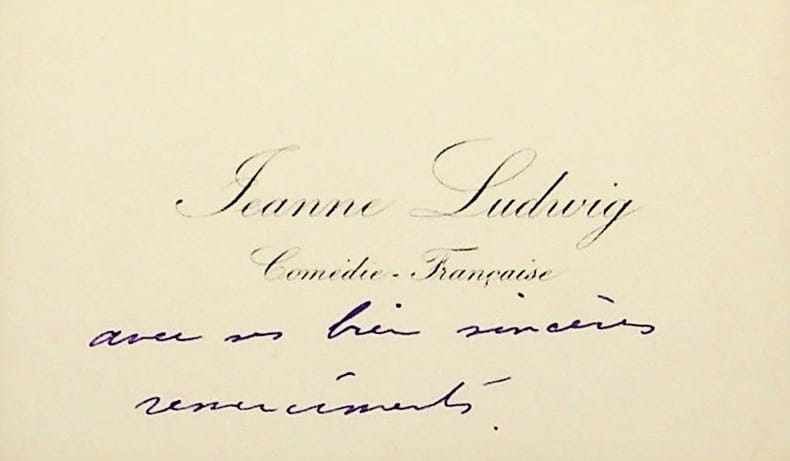 Jeanne Ludwig
Comédie-Française
avec ses bien sincères
remerciements.